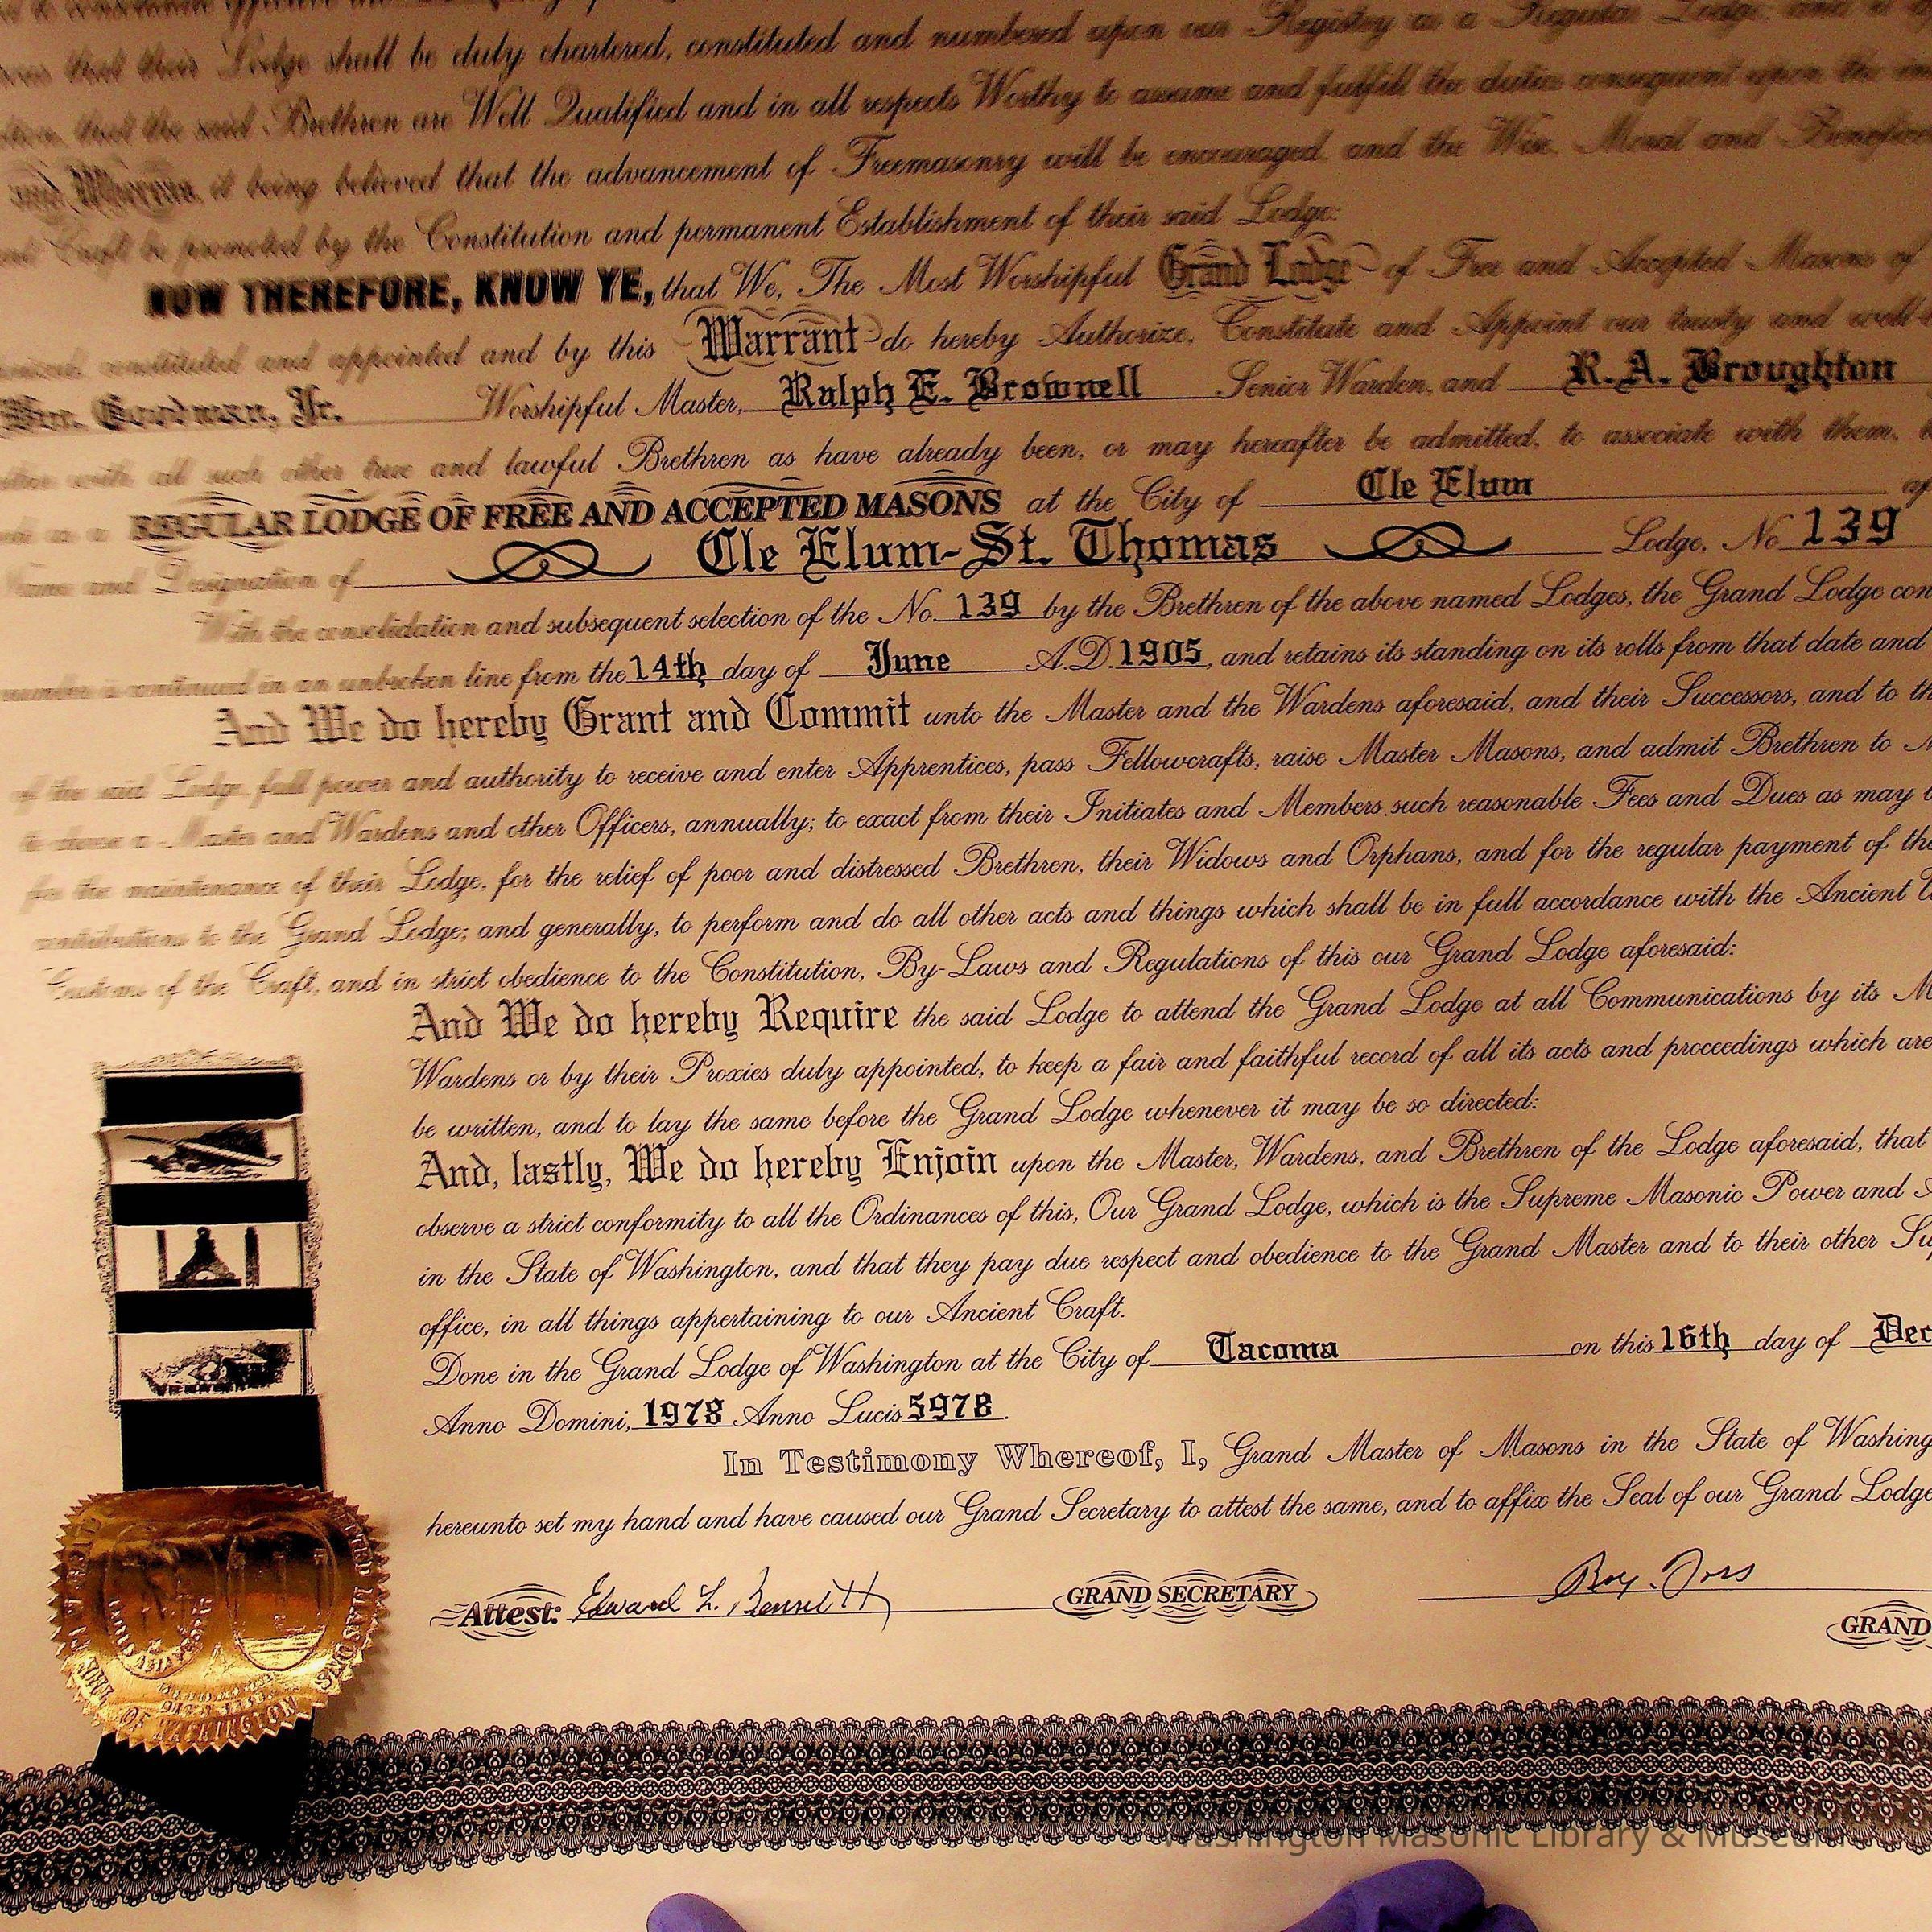 that their Lodge shall be duly chartered, constituted and numbered upon our Registry as a Regular Lodge, and it
that the said Brethren are Well Qualified and in all respects Worthy to assume and fulfill the duties consequent upon the
and Whereas, it being believed that the advancement of Freemasonry will be encouraged, and the Wise, Moral and
Craft be promoted by the Constitution and permanent Establishment of their said Lodge:
NOW THEREFORE, KNOW YE, that We, The Most Worshipful Grand Lodge of Free and Accepted Masons of
constituted and appointed and by this Warrant do hereby Authorize, Constitute and Appoint our trusty and well-
Wm. Goodman, Jr. Worshipful Master, Ralph E. Brownell Senior Warden, and R. A. Broughton
with all such other true and lawful Brethren as have already been, or may hereafter be admitted, to associate with them,
as a REGULAR LODGE OF FREE AND ACCEPTED MASONS at the City of Cle Elum
Name and Designation of Cle Elum-St. Thomas Lodge, No 139
With the consolidation and subsequent selection of the No. 139 by the Brethren of the above named Lodges, the Grand Lodge con
number is continued in an unbroken line from the 14th day of June A.D. 1905, and retains its standing on its rolls from that date and
And We do hereby Grant and Commit unto the Master and the Wardens aforesaid, and their Successors, and to th
of the said Lodge, full power and authority to receive and enter Apprentices, pass Fellowcrafts, raise Master Masons, and admit Brethren to
to choose a Master and Wardens and other Officers, annually; to exact from their Initiates and Members such reasonable Fees and Dues as may
for the maintenance of their Lodge, for the relief of poor and distressed Brethren, their Widows and Orphans, and for the regular payment of the
contributions to the Grand Lodge; and generally, to perform and do all other acts and things which shall be in full accordance with the Ancient
Customs of the Craft, and in strict obedience to the Constitution, By-Laws and Regulations of this our Grand Lodge aforesaid:
And We do hereby Require the said Lodge to attend the Grand Lodge at all Communications by its M
Wardens or by their Proxies duly appointed, to keep a fair and faithful record of all its acts and proceedings which are
be written, and to lay the same before the Grand Lodge whenever it may be so directed:
And, lastly, We do hereby Enjoin upon the Master, Wardens, and Brethren of the Lodge aforesaid, that
observe a strict conformity to all the Ordinances of this, Our Grand Lodge, which is the Supreme Masonic Power and
in the State of Washington, and that they pay due respect and obedience to the Grand Master and to their other Su
office, in all things appertaining to our Ancient Craft.
Done in the Grand Lodge of Washington at the City of Tacoma on this 16th day of Dec
Anno Domini, 1978 Anno Lucis 5978.
In Testimony Whereof, I, Grand Master of Masons in the State of Washing
hereunto set my hand and have caused our Grand Secretary to attest the same, and to affix the Seal of our Grand Lodge
Attest: Edward L. Bennett GRAND SECRETARY Roy. Foss
GRAND
OF WASHINGTON
Washington Masonic Library & Museum